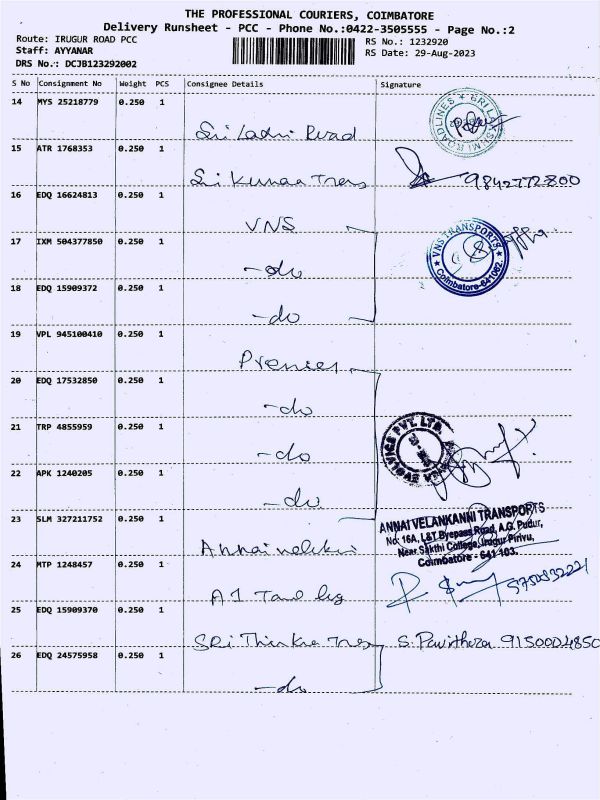 THE PROFESSIONAL COURIERS, COIMBATORE
Delivery Runsheet - PCC - Phone No.:0422-3505555 - Page No.:2
Route: IRUGUR ROAD PCC
Staff: AYYANAR
DRS No.: DCJB123292002
RS No.: 1232920
RS Date: 29-Aug-2023
S No Consignment No Weight PCS Consignee Details Signature
14 MYS 25218779 0.250 1
SRI LAKSHMI ROADLINES
15 ATR 1768353 0.250 1
Sri Kumaa Trans 9842772800
16 EDQ 16624813 0.250 1
VNS
VNS TRANSPORTS
Coimbatore-641062.
17 IXM 504377850 0.250 1
-do
18 EDQ 15909372 0.250 1
-do
19 VPL 945100410 0.250 1
Premier
20 EDQ 17532850 0.250 1
-do
21 TRP 4855959 0.250 1
-do
22 APK 1240205 0.250 1
-do
23 SLM 327211752 0.250 1
ANNAI VELANKANNI TRANSPORTS
No: 16A, L&T Byepass Road, A.G. Pudur,
Near Sakthi College, Irugur Pirivu,
Coimbatore - 641 103.
24 MTP 1248457 0.250 1
A1
25 EDQ 15909370 0.250 1
SRi S. Pavithra 9150004850
26 EDQ 24575958 0.250 1
-do